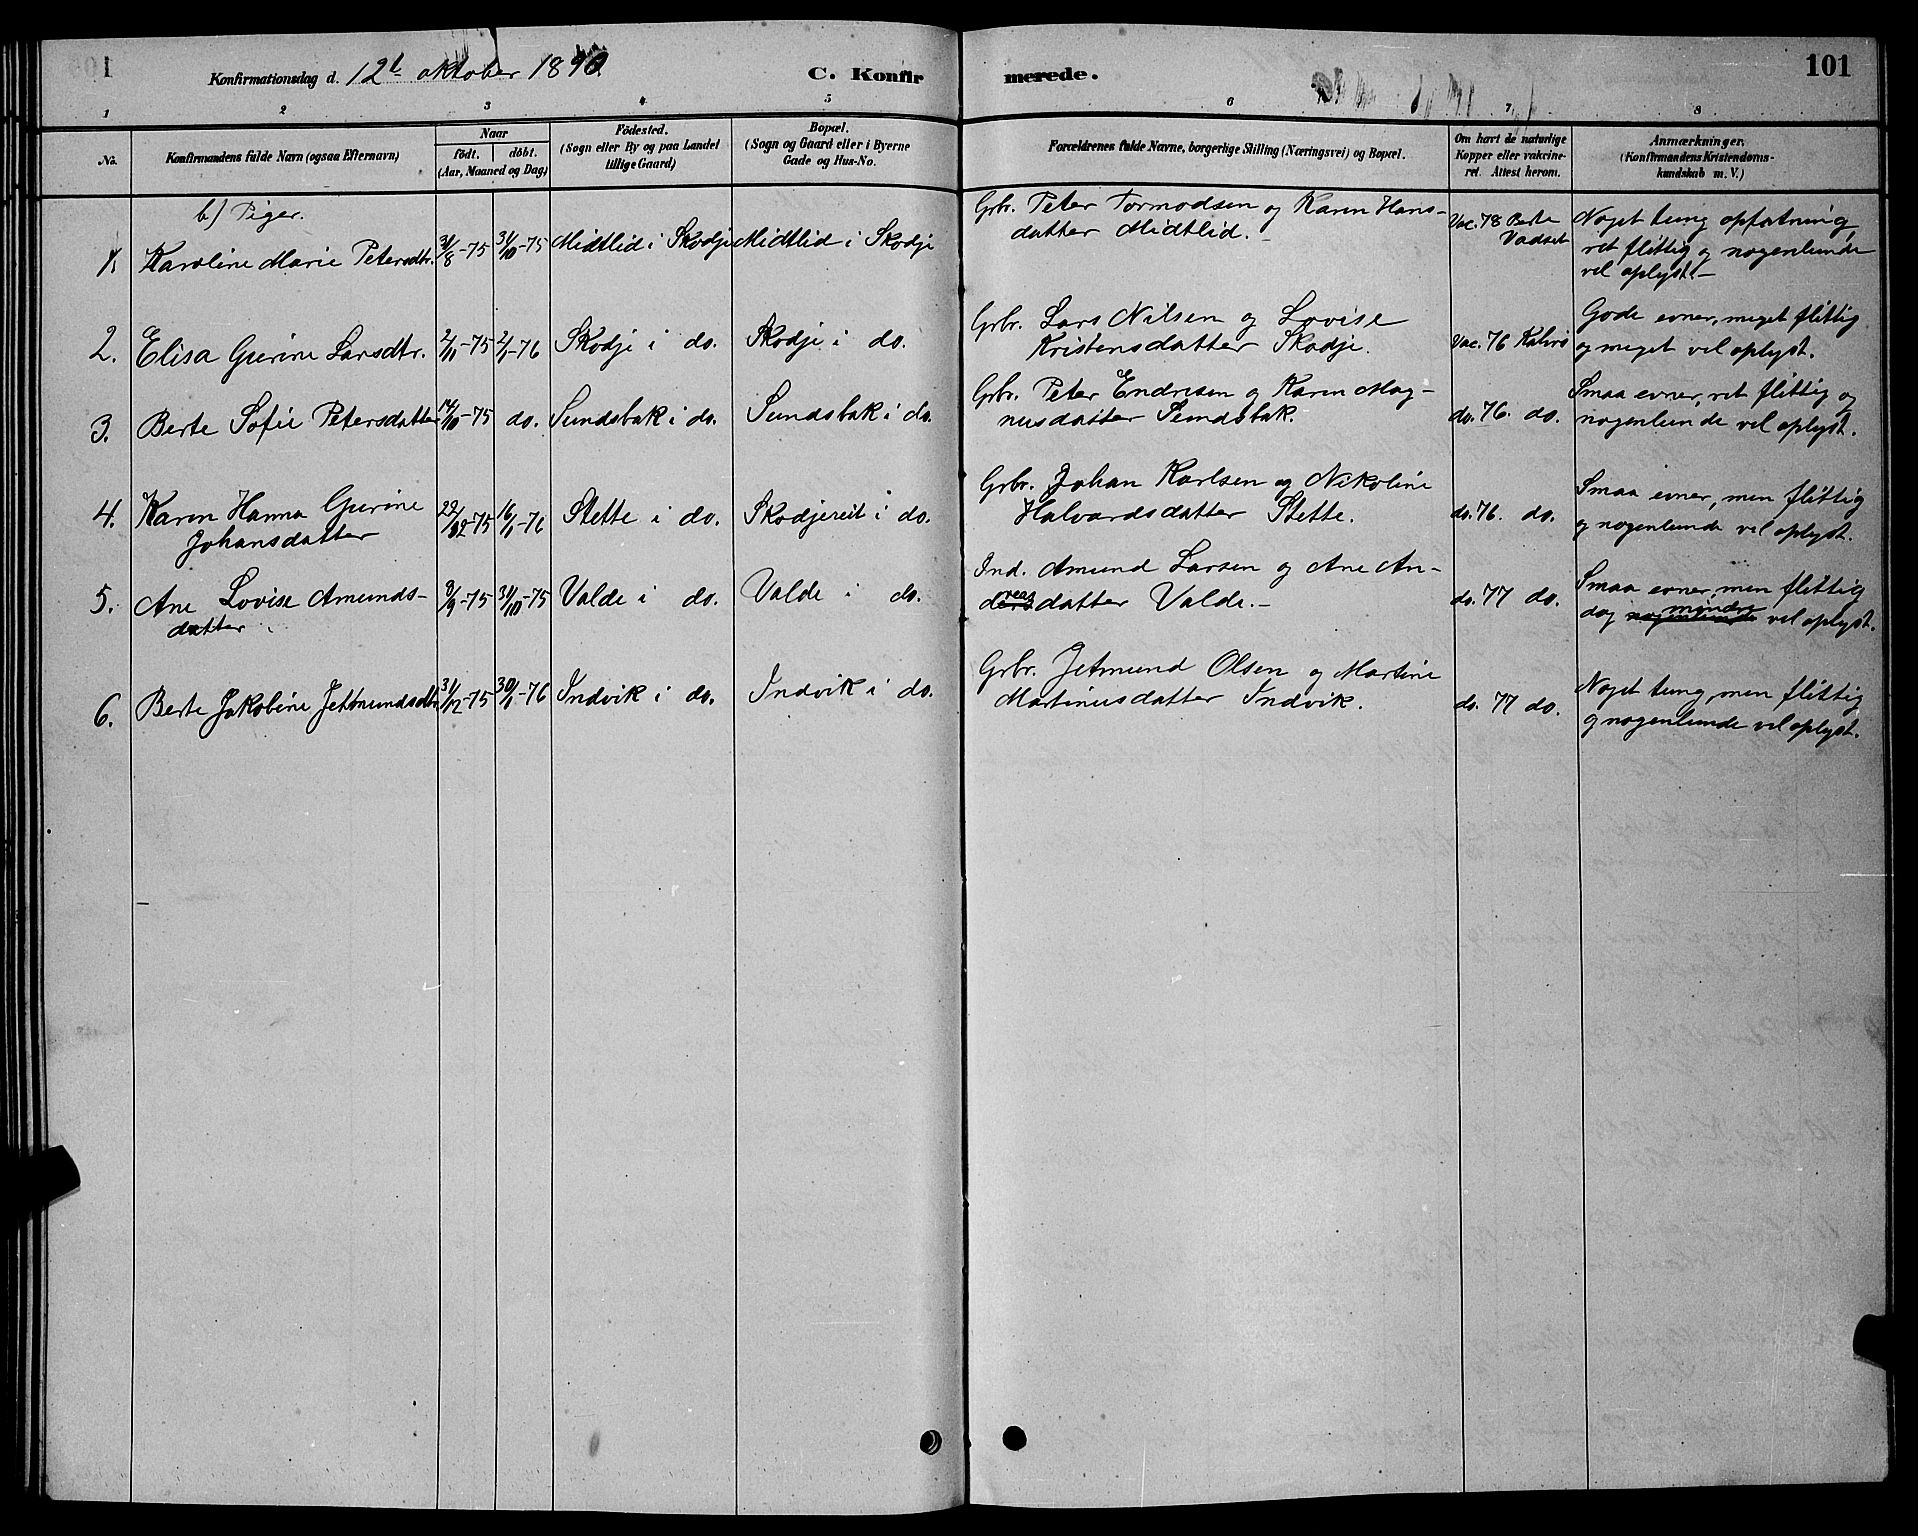 Konfirmationsdag d. 12t oktober 1890. C. Konfirmerede. 101
1 2 3 4 5 6 7 8
No. Konfirmandens fulde Navn (ogsaa Efternavn) Naar født. døbt. (Aar, Maaned og Dag) Fødested. (Sogn eller By og paa Landet tillige Gaard) Bopæl. (Sogn og Gaard eller i Byerne Gade og Hus-No. Forældrenes fulde Navne, borgerlige Stilling (Næringsvei) og Bopæl. Om havt de naturlige Kopper eller vakcineret. Attest herom. Anmærkninger. (Konfirmandens Kristendomskundskab m. V.)
b) Piger.
1. Karoline Marie Petersdtr. 31/8-75 31/10-75 Midtlid i Skodje Midtlid i Skodje Grbr. Peter Tormodsen og Karen Hans-
datter Midtlid. Vac. 78 Berte Vadset Noget tung opfatning,
ret flittig og nogenlunde
vel oplyst.
2. Elisa Gurine Larsdtr. 2/11-75 2/1-76 Skodje i do. Skodje i do. Grbr. Lars Nilsen og Lovise
Kristensdatter Skodje. Vac. 76 Kalvø Gode evner, meget flittig
og meget vel oplyst.
3. Berte Sofie Petersdatter 14/10-75 do. Sundsbak i do. Sundsbak i do. Grbr. Peter Endresen og Karen Mag-
nusdatter Sundsbak. do. 76. do. Smaa evner, ret flittig og
nogenlunde vel oplyst.
4. Karen Hanna Gurine
Johansdatter 22/12-75 16/1-76 Stette i do. Skodjereit i do. Grbr. Johan Karlsen og Nikoline
Halvardsdatter Stette. do. 76. do. Smaa evner, men flittig
og nogenlunde vel oplyst.
5. Ane Lovise Amunds-
datter 9/9-75 31/10-75 Valde i do. Valde i do. Ind. Amund Larsen og Ane An-
dreasdatter Valde. do. 77 do. Smaa evner, men flittig
dog nogenlunde mindre vel oplyst.
6. Berte Jakobine Jetmundsdtr. 31/12-75 30/1-76 Indvik i do. Indvik i do. Grbr. Jetmund Olsen og Martine
Martinusdatter Indvik. do. 77 do. Noget tung, men flittig
og nogenlunde vel oplyst.